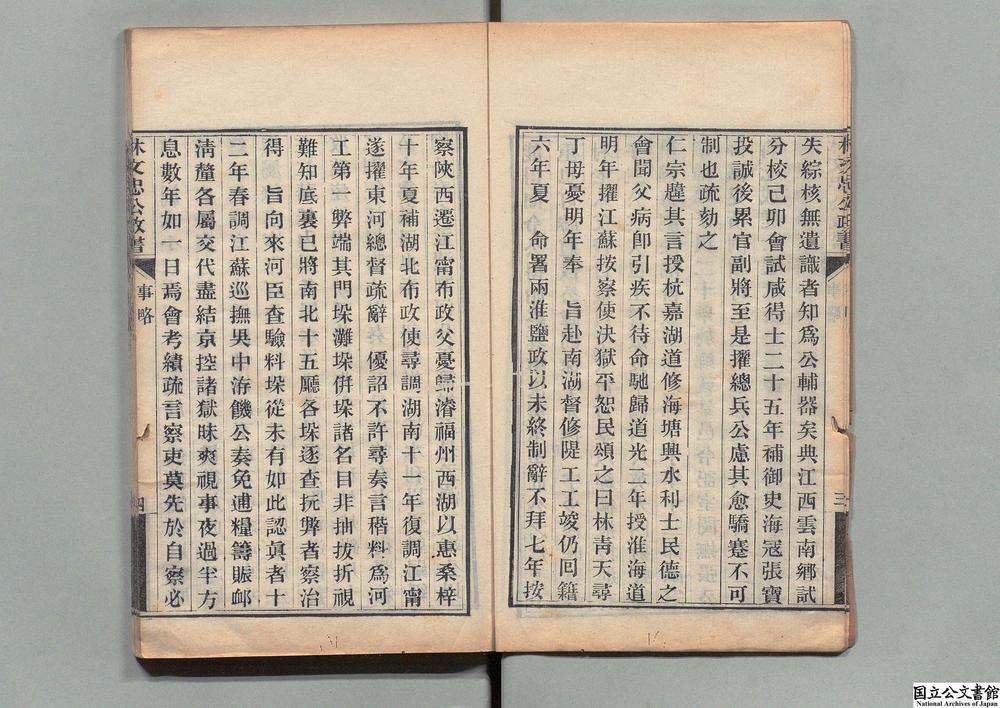 失綜核無遺識者知爲公輔器矣典江西雲南鄉試
分校己卯會試咸得士二十五年補御史海冦張寶
投誠後累官副將至是擢總兵公慮其愈驕蹇不可
制也疏劾之
仁宗韙其言授杭嘉湖道修海塘興水利士民德之
會聞父病卽引疾不待命馳歸道光二年授淮海道
明年擢江蘇按察使決獄平恕民頌之曰林靑天尋
丁母憂明年奉 旨赴南湖督修隄工工竣仍回籍
六年夏 命署兩淮鹽政以未終制辭不拜七年按
三
察陝西遷江甯布政父憂歸濬福州西湖以惠桑梓
十年夏補湖北布政使尋調湖南十一年復調江甯
遂擢東河總督疏辭 優詔不許尋奏言稭料爲河
工第一弊端其門垜灘垜併垜諸名目非抽拔折視
難知底裏已將南北十五廳各垜逐查抏弊者察治
得 旨向來河臣查驗料垜從未有如此認眞者十
二年春調江蘇巡撫吳中洊饑公奏免逋糧籌賑卹
淸釐各屬交代盡結京控諸獄昧爽視事夜過半方
息數年如一日焉會考績疏言察吏莫先於自察必
林文忠公政書
事略
四
国立公文書館
National Archives of Japan